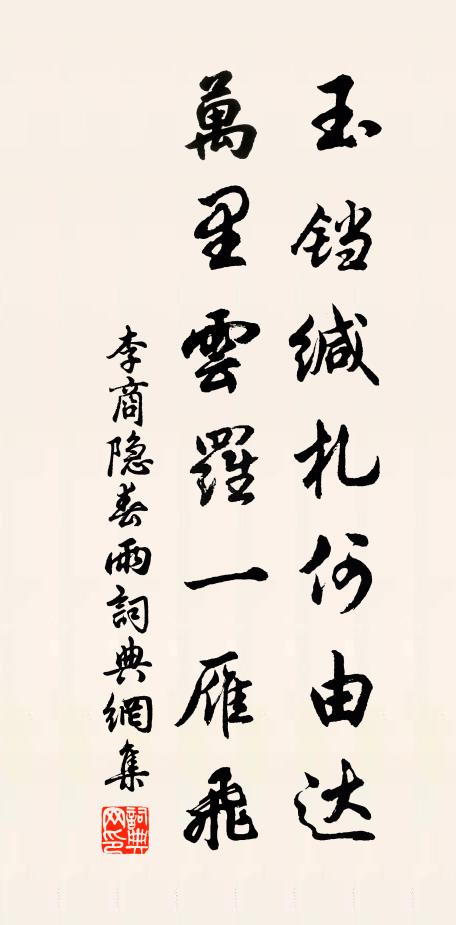 玉铛缄札何由达
萬里雲羅一雁飛
李商隐春雨詞典網集
詞典網印